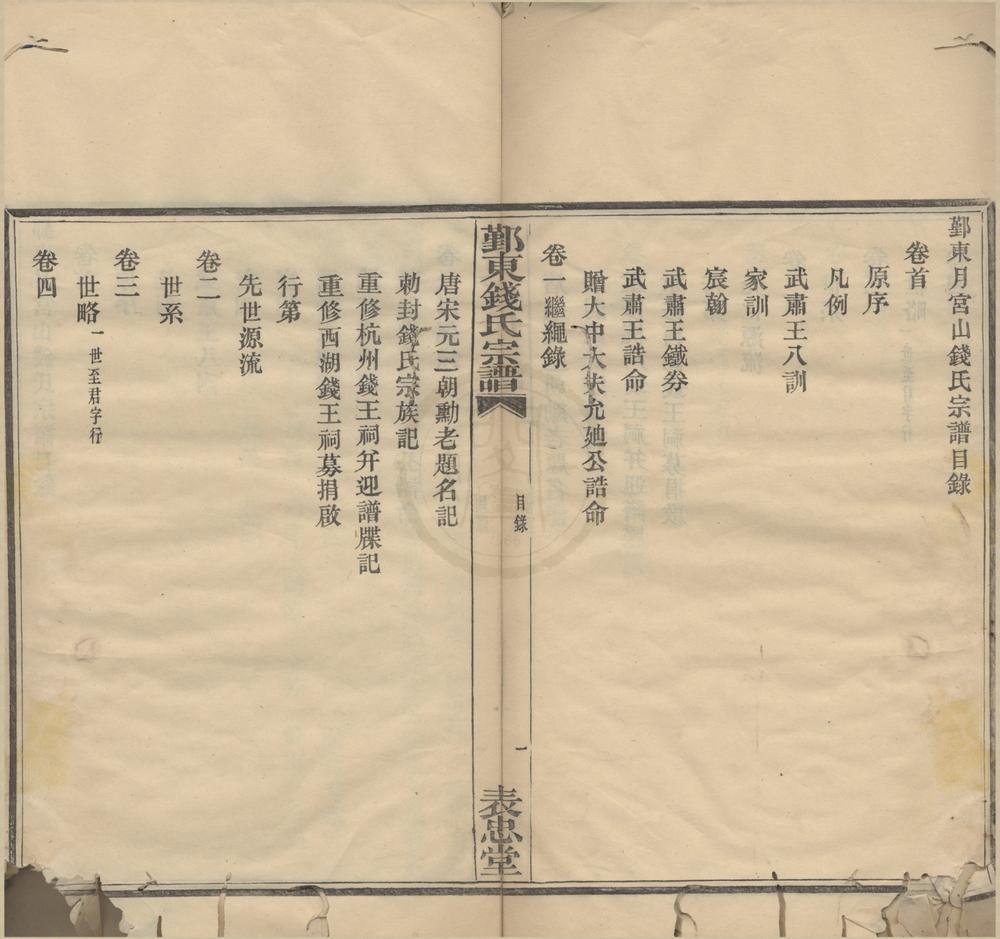 鄞東月宮山錢氏宗譜目錄
卷首
原序
凡例
武肅王八訓
家訓
宸翰
武肅王鐵券
武肅王誥命
贈大中大夫允廸公誥命
卷一 繼繩錄
鄞東錢氏宗譜 目錄 一 表忠堂
唐宋元三朝勳老題名記
勅封錢氏宗族記
重修杭州錢王祠幷迎譜牒記
重修西湖錢王祠募捐啟
行第
先世源流
卷二
世系
卷三
世略 一世至君字行
卷四